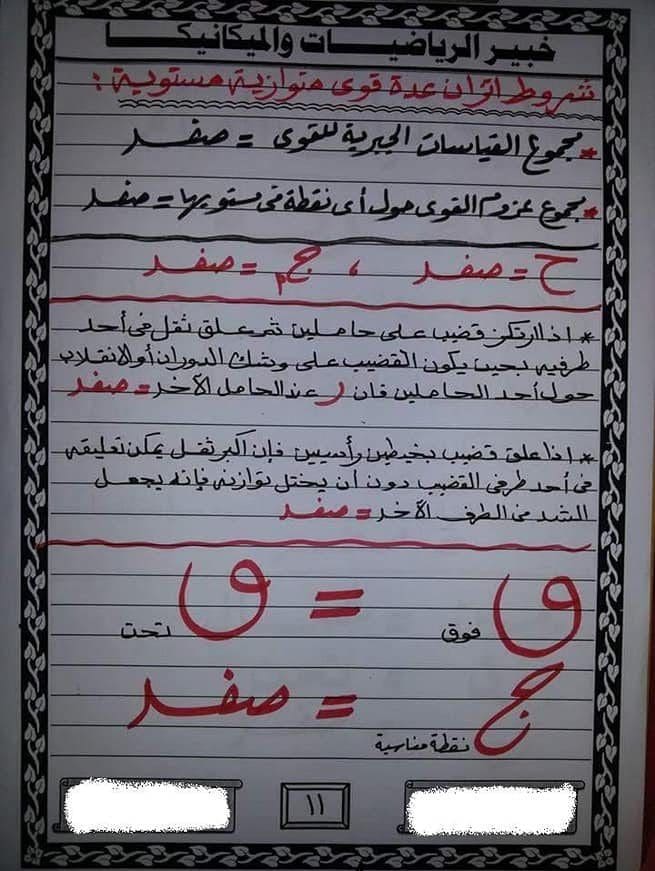 خبير الرياضيات والميكانيكا
شروط اتزان عدة قوى متوازية مستوية :
* مجموع القياسات الجبرية للقوى = صفر
* مجموع عزوم القوى حول أى نقطة فى مستويها = صفر
ح = صفر ، جم = صفر
* اذا ارتكز قضيب على حاملين ثم علق ثقل فى أحد
طرفيه بحيث يكون القضيب على وشك الدوران أو الانقلاب
حول أحد الحاملين فان ر عند الحامل الآخر = صفر
* اذا علق قضيب بخيطين رأسيين فإن اكبر ثقل يمكن تعليقه
فى أحد طرفى القضيب دون أن يختل توازنه فإنه يجعل
الشد فى الطرف الآخر = صفر
ق فوق = ق تحت
ج نقطة مناسبة = صفر
١١